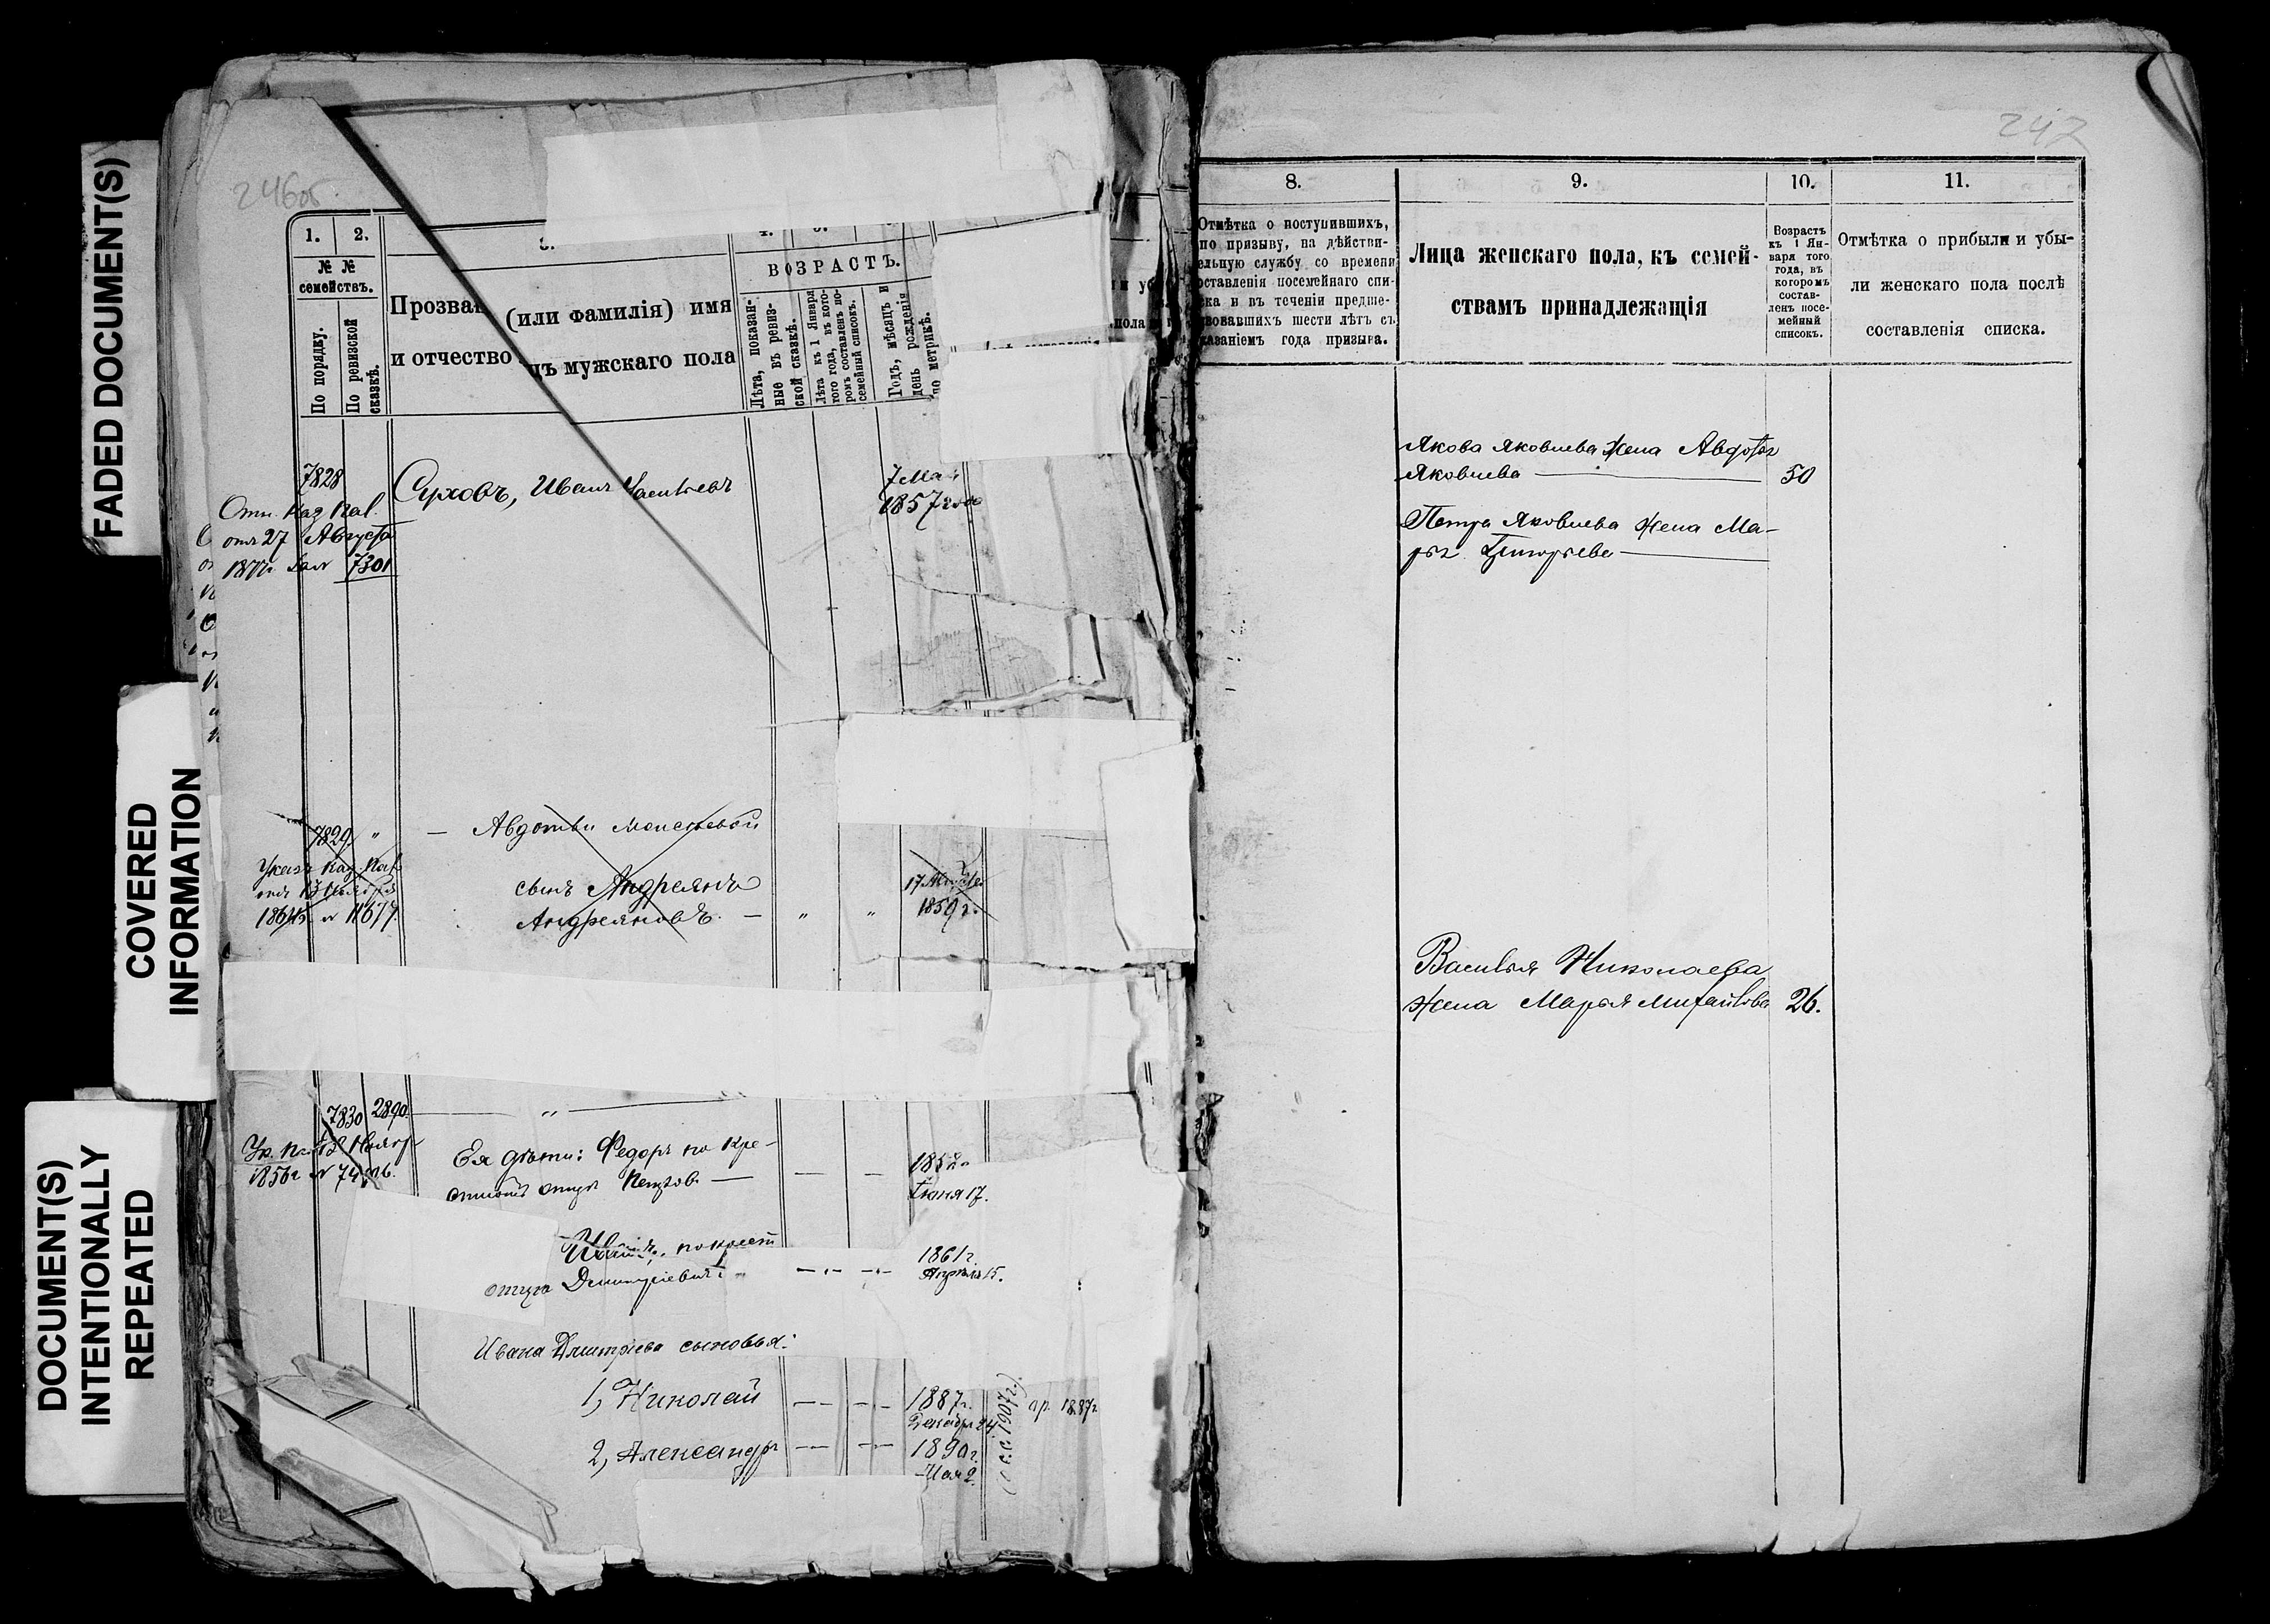 FADED DOCUMENT(S)
COVERED
INFORMATION
DOCUMENT(S)
INTENTIONALLY
REPEATED
246об.
1. 2.
№ №
семействъ.
По порядку.
По ревизской
сказкѣ.
Прозван (или фамилія) имя
и отчество цъ мужскаго пола
ВОЗРАСТЪ.
Лѣта, показан-
ные въ ревиз-
ской сказкѣ.
Лѣта къ 1 Января
того года, въ кото-
ромъ составленъ по-
семейный списокъ.
Годъ, мѣсяцъ и
день рожденія
по метрикѣ.
7828
Суховъ, Иванъ
7 Ма
1857 года
Отн. Каз Пал.
отъ 27 Августа
187 за № 7301
7829 " — Авдотьи Моисеевой
Указъ Каз Пал
сынъ Андреянъ
Андреяновъ — " "
17
1859 г.
186 № 11677
7830 2890. "
Ея дѣти: Федоръ по кре-
стному отцу Петровъ — — —
185
Іюня 17.
1856г № 74
Иванъ, по крест
отцу Дмитріевичъ
1861г.
Апрѣля 15.
Ивана Дмитріева сыновья:
1, Николай
1887г.
Декабря 24
(о с.с 1907г.)
пр. 1887г
2, Александръ
1890г.
Мая 2.
247
8. 9. 10. 11.
Отмѣтка о поступившихъ,
по призыву, на дѣйстви-
ельную службу со времени
оставленія посемейнаго спи-
ска и въ теченіи предше-
твовавшихъ шести лѣтъ съ
казаніемъ года призыва.
Лица женскаго пола, къ семей-
ствамъ принадлежащія
Возрастъ
къ 1 Ян-
варя того
года, въ
которомъ
состав-
ленъ посе-
мейный
списокъ.
Отмѣтка о прибыли и убы-
ли женскаго пола послѣ
составленія списка.
Якова Яковлева жена Авдотья
Яковлева — 50
Петра Яковлева жена Ма-
рья Григорьева —
Василья Николаева
жена Марья Михайлова 26.